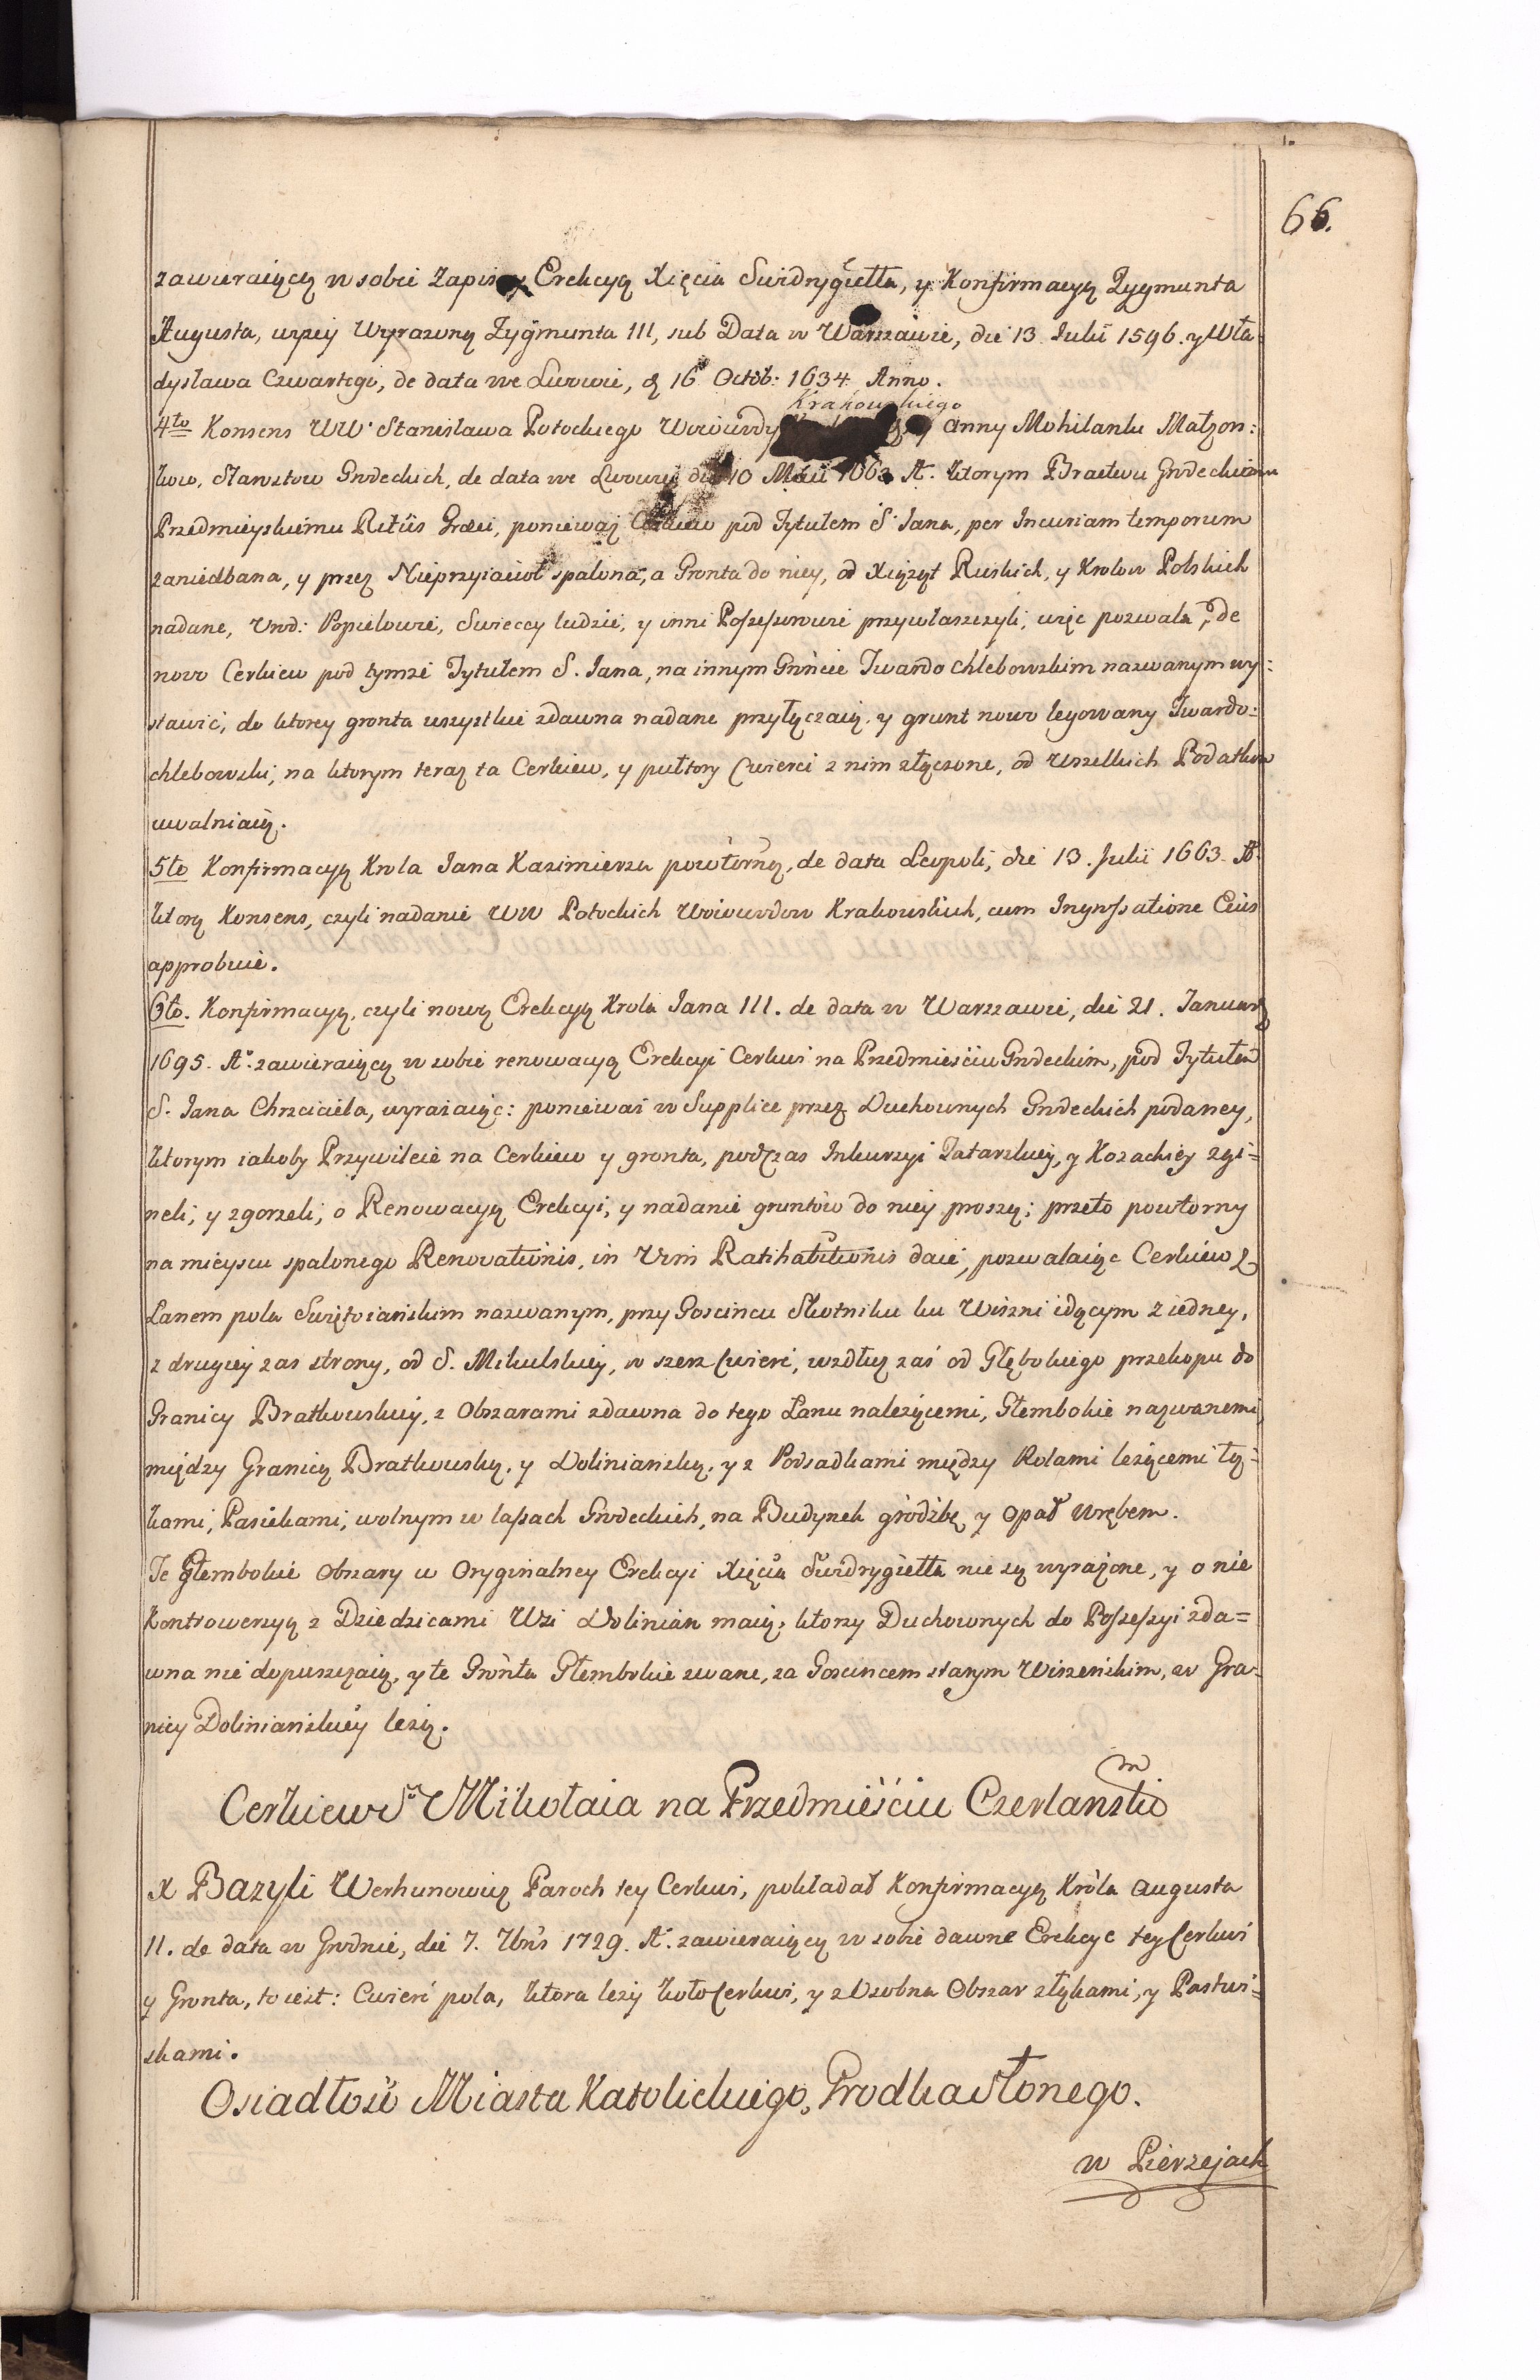 66.
zawieraiącą w sobie Zapis y Erekcyą Xięcia Swidrygiełła, y Konfirmacyą Zygmunta
Augusta, wyzey Wyrazoną Zygmunta III, sub Data w Warszawie, die 13 Julii 1596. y Wła-
dysława Czwartego, de data we Lwowie, d 16 Octob: 1634 Anno.
Krakowskiego
4to Konsens WW Stanisława Potockiego Woiewody y Anny Mohilanki Małzon:
kow, Starostow Grodeckich, de data we Lwowie die 10 Maii 1663 A. ktorym Bractwu Grodeckiemu
Przedmieyskiemu Ritûs Græci, poniewaz Cerkiew pod Tytułem S Jana, per Incuriam temporum
zaniedbana, y przez Nieprzyiacioł spalona, a Gronta do niey, od Xiążąt Ruskich, y Krolow Polskich
nadane, Urod: Popielowie, Swieccy ludzie, y inni Possessorowie przywłaszczyli, więc pozwala, de
novo Cerkiew pod tymze Tytułem S. Jana, na innym Gróncie Twardochlebowskim nazwanym wy:
stawić, do ktorey gronta wszystkie zdawna nadane przyłączaią, y grunt nowo legowany Twardo:
chlebowski, na ktorym teraz ta Cerkiew, y pułtory Cwierci z nim złączone, od Wszelkich Podatkow
uwalniaią.
5to Konfirmacyą Krola Jana Kazimierza powtorną, de data Leopoli, die 13. Julii 1663. A.
ktorą Konsens, czyli nadanie WW Potockich Woiewodow Krakowskich, cum Ingrossatione Eius
approbuie.
6to. Konfirmacyą, czyli nową Erekcyą Krola Jana III. de data w Warszawie, die 21. January
1695. A. zawieraiącą w sobie renowacyą Erekcyi Cerkwi na Przedmieściu Grodeckim, pod Tytułem
S. Jana Chrzciciela, wyrażaiąc: ponieważ w Supplice przez Duchownych Grodeckich podaney,
ktorym iakoby Przywileie na Cerkiew y gronta, podczas Inkursyi Tatarskiey, y Kozackiey zgi=
neli, y zgorzeli, o Renowacyą Erekcyi, y nadanie gruntów do niey proszą; przeto powtorny
na mieyscu spalonego Renovationis, in Vim Ratihabitionis daie, pozwalaiąc Cerkiew z
Łanem pola Swiętoiańskim nazwanym, przy Goscincu Skotniku ku Wiszni idącym z iedney,
z drugiey zas strony, od S. Mikulskiey, w szerz Cwierć, wzdłuż zaś od Głębokiego przekopu do
Granicy Bratkowskiey, z Obszarami zdawna do tego Łanu należącemi, Głembokie nazwanemi,
między Granicą Bratkowską, y Doliniańską, y z Posadkami między Rolami leżącemi łą=
kami, Pasiekami, wolnym w lassach Grodeckich, na Budynek gródźbę y Opał Wrębem.
Te Głembokie Obszary w Oryginalney Erekcyi Xięcia Swidrygiełła nie są wyrażone, y o nie
Kontrowersyą z Dziedzicami Wsi Dolinian maią, ktorzy Duchownych do Possessyi zda=
wna nie dopuszczaią, y te Grónta Głembokie zwane, za Goscincem starym Wiszeńskim, w Gra-
nicy Doliniańskiey leżą.
Cerkiew S Mikołaia na Przedmieściu Czerlanskim
X Bazyli Werhunowicz Paroch tey Cerkwi, pokładał Konfirmacyą Króla Augusta
II. de data w Grodnie, die 7. 7bris 1729. A. zawieraiącą w sobie dawne Erekcye tey Cerkwi
y Gronta, to iest: Cwierć pola, ktora leży koło Cerkwi, y z Osobna Obszar z łąkami, y Pastwi=
skami.
Osiadłość Miasta Katolickiego, Grodka Słonego.
w Pierzejach